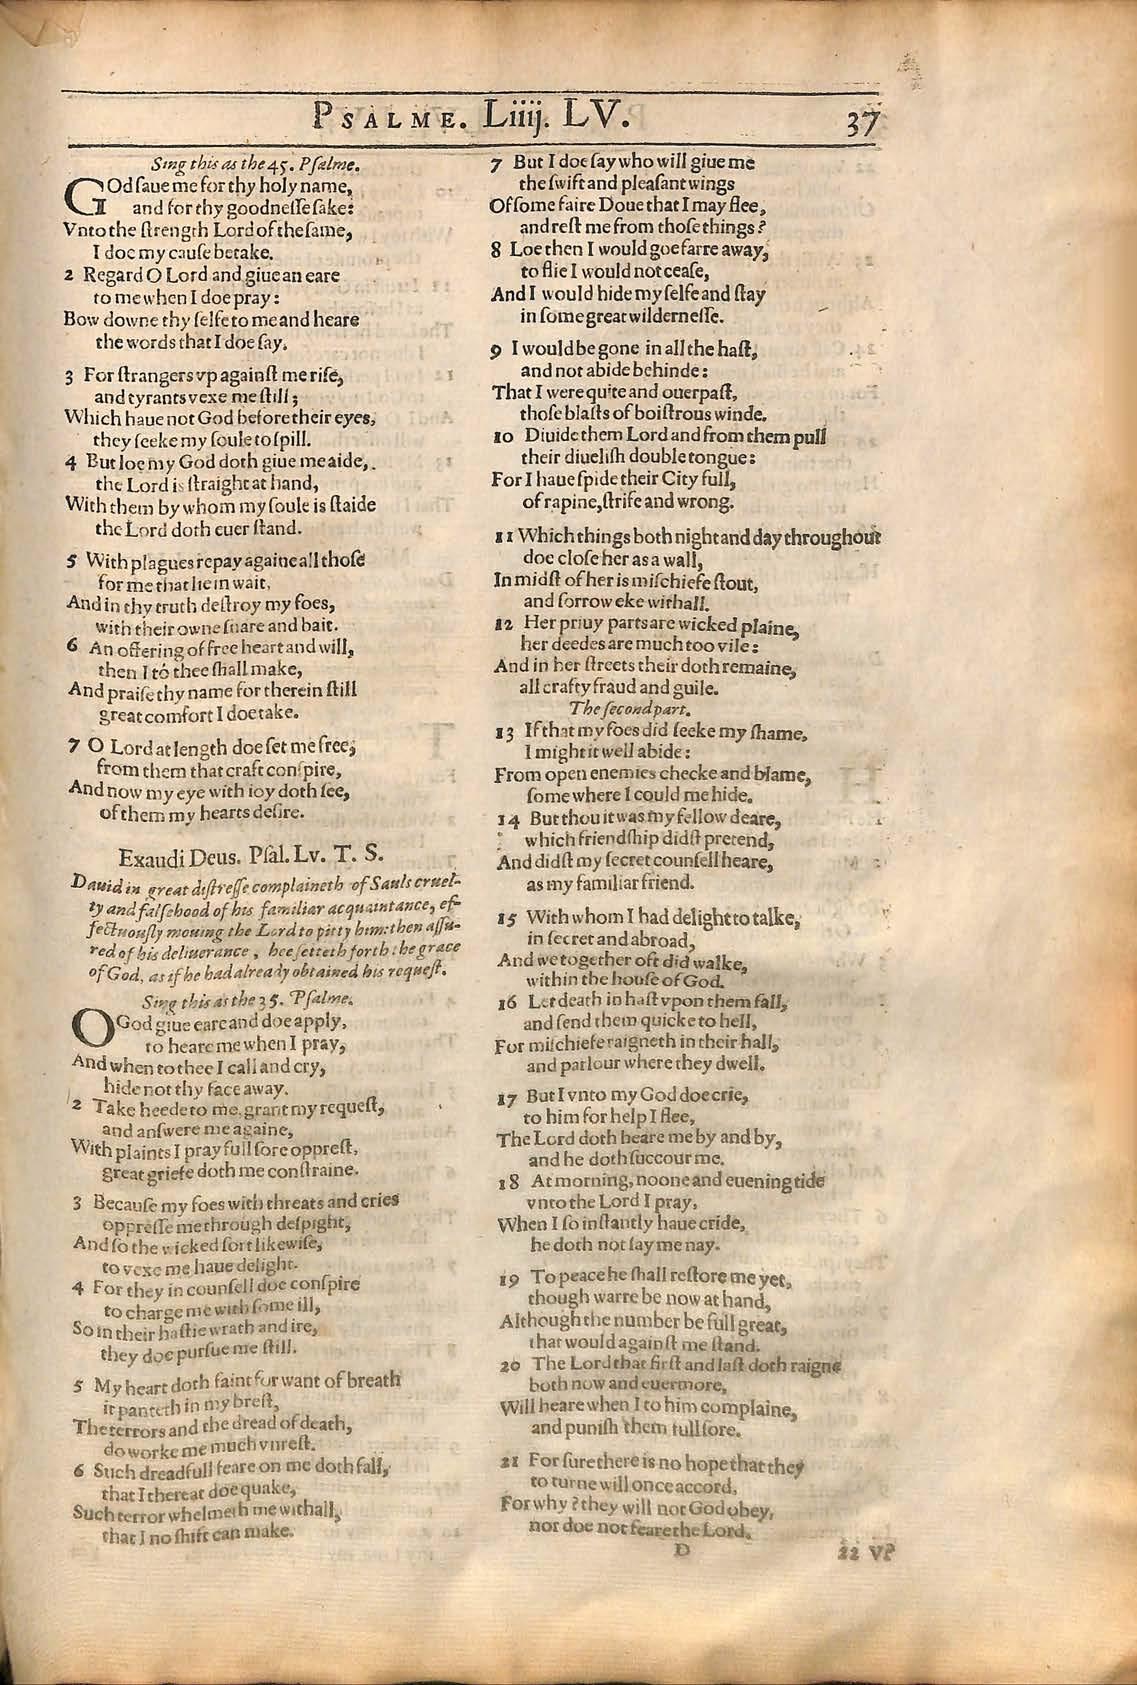 PSALME. Liiij. LV. 37
Sing this as the 45. Pſalme.
GOd ſaue me for thy holy name,
and for thy goodneſſe ſake:
Vnto the ſtrength Lord of the ſame,
I doe my cauſe betake.
2 Regard O Lord and giue an eare
to me when I doe pray:
Bow downe thy ſelfe to me and heare
the words that I doe ſay.
3 For ſtrangers vp againſt me riſe,
and tyrants vexe me ſtill;
Which haue not God before their eyes,
they ſeeke my ſoule to ſpill.
4 But loe my God doth giue me aide,
the Lord is ſtraight at hand,
With them by whom my ſoule is ſtaide
the Lord doth euer ſtand.
5 With plagues repay againe all thoſe
for me that lie in wait,
And in thy truth deſtroy my foes,
with their owne ſnare and bait.
6 An offering of free heart and will,
then I to thee ſhall make,
And praiſe thy name for therein ſtill
great comfort I doe take.
7 O Lord at length doe ſet me free,
from them that craft conſpire,
And now my eye with ioy doth ſee,
of them my hearts deſire.
Exaudi Deus. Pſal. Lv. T. S.
Dauid in great diſtreſſe complaineth of Sauls cruel-
ty and falſehood of his familiar acquaintance, ef-
fectuouſly mouing the Lord to pitty him: then aſſu-
red of his deliuerance, hee ſetteth forth the grace
of God, as if he had already obtained his requeſt.
Sing this as the 35. Pſalme.
O God giue eare and doe apply,
to heare me when I pray,
And when to thee I call and cry,
hide not thy face away.
2 Take heede to me, grant my requeſt,
and anſwere me againe,
With plaints I pray full ſore oppreſt,
great griefe doth me conſtraine.
3 Becauſe my foes with threats and cries
oppreſſe me through deſpight,
And ſo the wicked ſort likewiſe,
to vexe me haue delight.
4 For they in counſell doe conſpire
to charge me with ſome ill,
So in their haſtie wrath and ire,
they doe purſue me ſtill.
5 My heart doth faint for want of breath
it panteth in my breſt,
The terrors and the dread of death,
do worke me much vnreſt.
6 Such dreadfull feare on me doth fall,
that I thereat doe quake,
Such terror whelmeth me withall,
that I no ſhift can make.
7 But I doe ſay who will giue me
the ſwift and pleaſant wings
Of ſome faire Doue that I may flee,
and reſt me from thoſe things?
8 Loe then I would goe farre away,
to flie I would not ceaſe,
And I would hide my ſelfe and ſtay
in ſome great wilderneſſe.
9 I would be gone in all the haſt,
and not abide behinde:
That I were quite and ouerpaſt,
thoſe blaſts of boiſtrous winde.
10 Diuide them Lord and from them pull
their diueliſh double tongue:
For I haue ſpide their City full,
of rapine, ſtrife and wrong.
11 Which things both night and day throughout
doe cloſe her as a wall,
In midſt of her is miſchiefe ſtout,
and ſorrow eke withall.
12 Her priuy parts are wicked plaine,
her deedes are much too vile:
And in her ſtreets their doth remaine,
all crafty fraud and guile.
The ſecond part.
13 If that my foes did ſeeke my ſhame,
I might it well abide:
From open enemies checke and blame,
ſome where I could me hide.
14 But thou it was my fellow deare,
which friendſhip didſt pretend,
And didſt my ſecret counſell heare,
as my familiar friend.
15 With whom I had delight to talke,
in ſecret and abroad,
And we together oft did walke,
within the houſe of God.
16 Let death in haſt vpon them fall,
and ſend them quicke to hell,
For miſchiefe raigneth in their hall,
and parlour where they dwell.
17 But I vnto my God doe crie,
to him for help I flee,
The Lord doth heare me by and by,
and he doth ſuccour me.
18 At morning, noone and euening tide
vnto the Lord I pray,
When I ſo inſtantly haue cride,
he doth not ſay me nay.
19 To peace he ſhall reſtore me yet,
though warre be now at hand,
Although the number be full great,
that would againſt me ſtand.
20 The Lord that firſt and laſt doth raigne
both now and euermore,
Will heare when I to him complaine,
and puniſh them full ſore.
21 For ſure there is no hope that they
to turne will once accord,
For why? they will not God obey,
nor doe not feare the Lord.
D 22 Vp